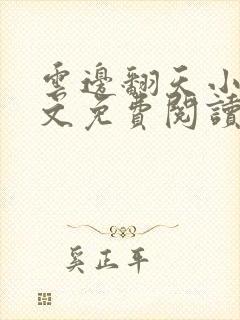 雲邊翻天小
文免費閱讀
奚正平